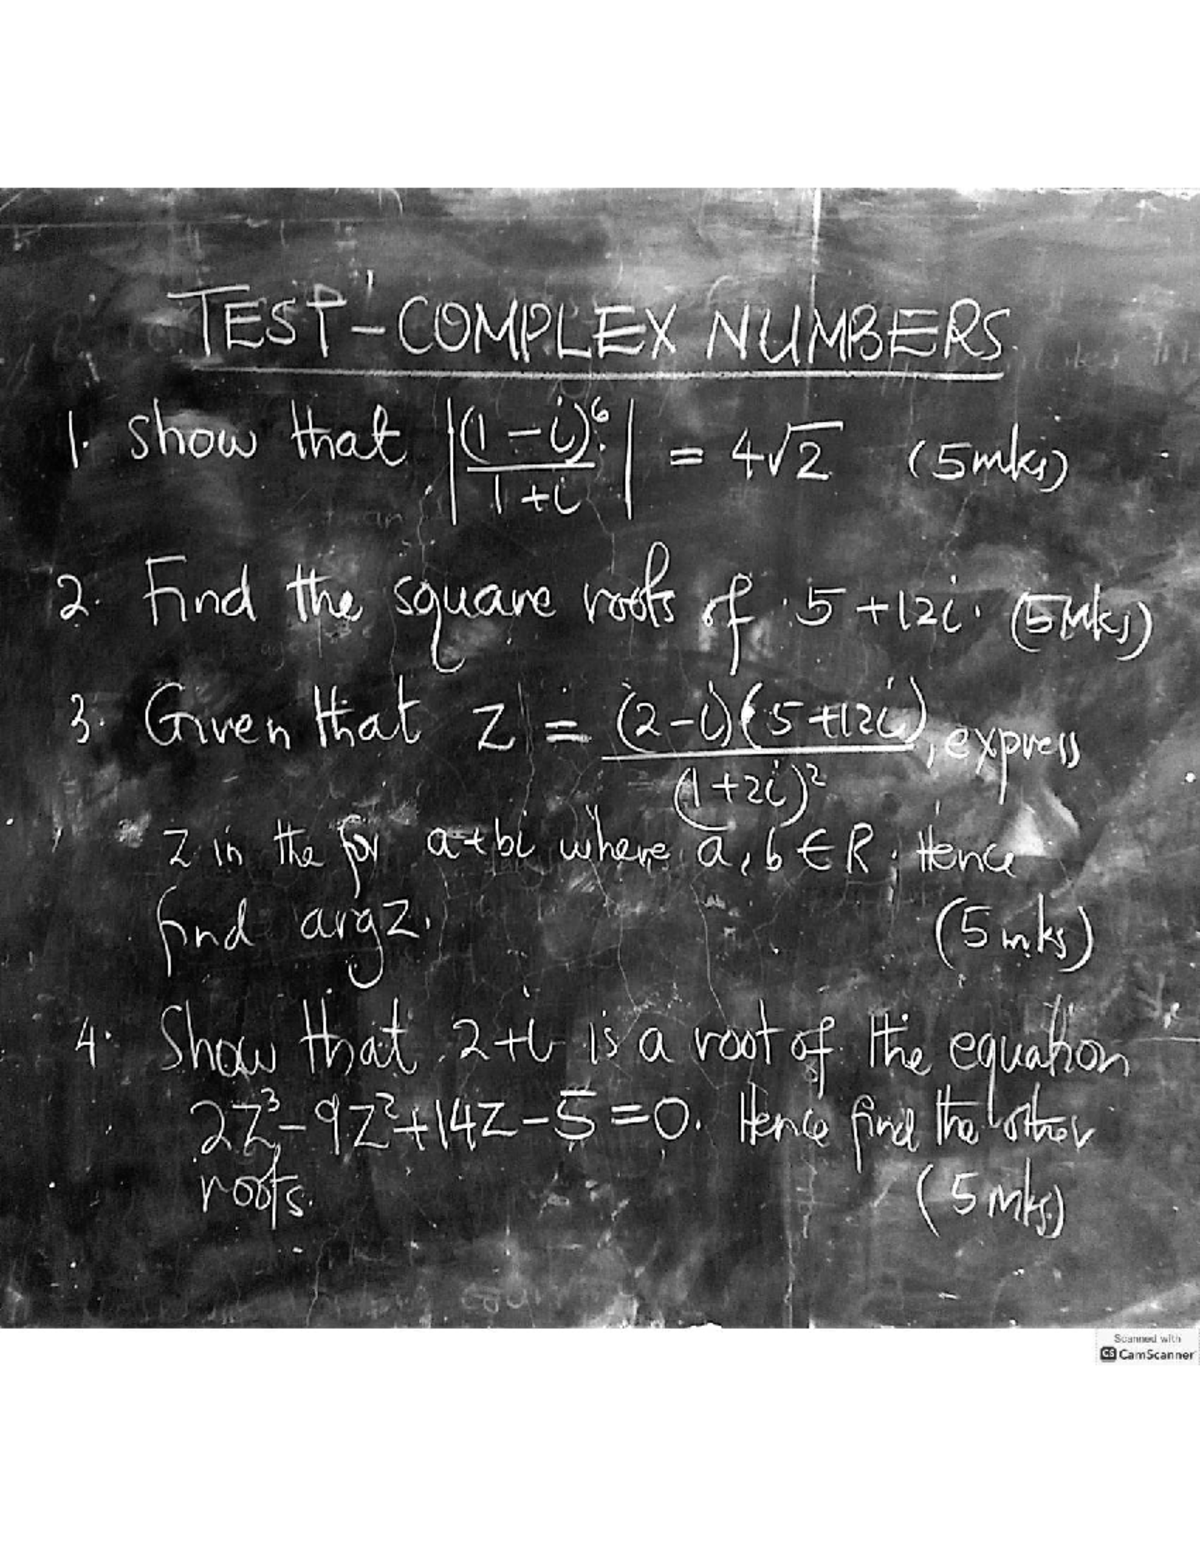 TEST - COMPLEX NUMBERS
1. Show that |(1-i)⁶/(1+i)| = 4√2 (5mks)
2. Find the square roots of 5+12i. (5Mks)
3. Given that Z = (2-i)(5+12i)/(1+2i)², express
Z in the for a+bi where a, b ∈ R. Hence
find arg z. (5mks)
4. Show that 2+i is a root of the equation
2Z³-9Z²+14Z-5=0. Hence find the other
roots. (5Mks)
Scanned with
CS CamScanner